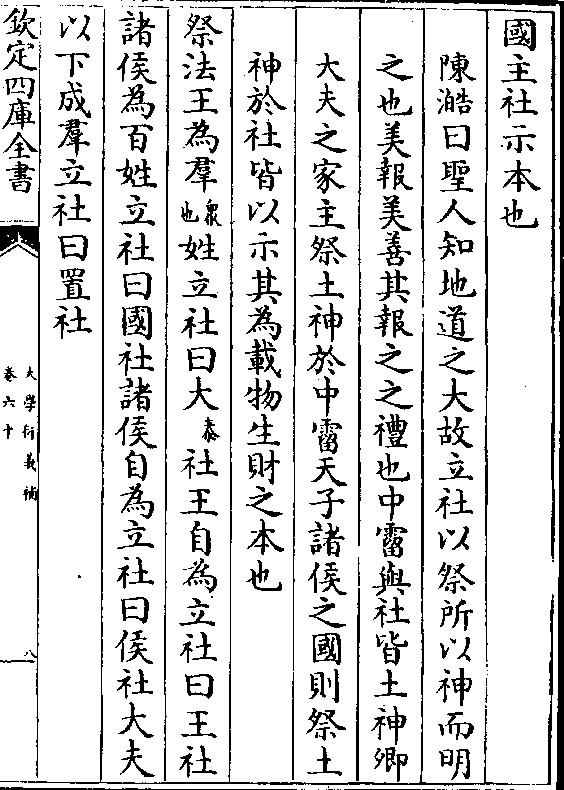 國主社示本也
陳澔曰聖人知地道之大故立社以祭所以神而明
之也美報美善其報之之禮也中霤與社皆土神卿
大夫之家主祭土神於中霤天子諸侯之國則祭土
神於社皆以示其為載物生財之本也
祭法王為羣衆也姓立社曰大泰社王自為立社曰王社
諸侯為百姓立社曰國社諸侯自為立社曰侯社大夫
以下成羣立社曰置社
欽定四庫全書
大學衍義補
卷六十
八